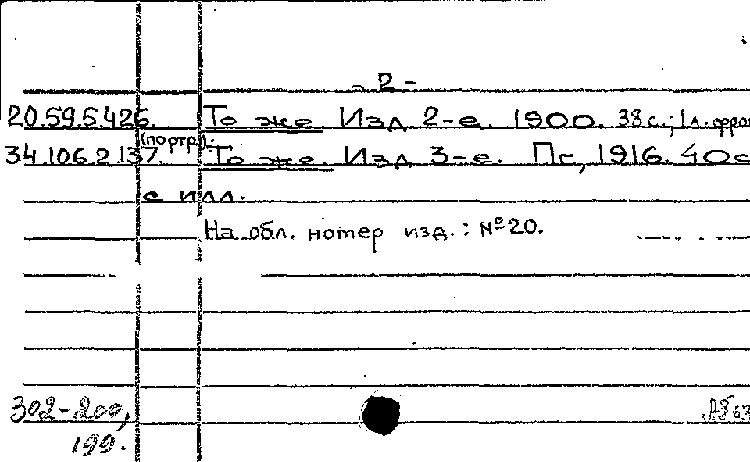 - 2 -
20.59.5.426. То же Изд 2-е. 1900. 38 с.; 1 л. фрон
(портр.).
34.106.2.137. То же. Изд 3-е. Пг, 1916. 40 с
с илл.
На обл. номер изд.: №20.
302-200,
199.